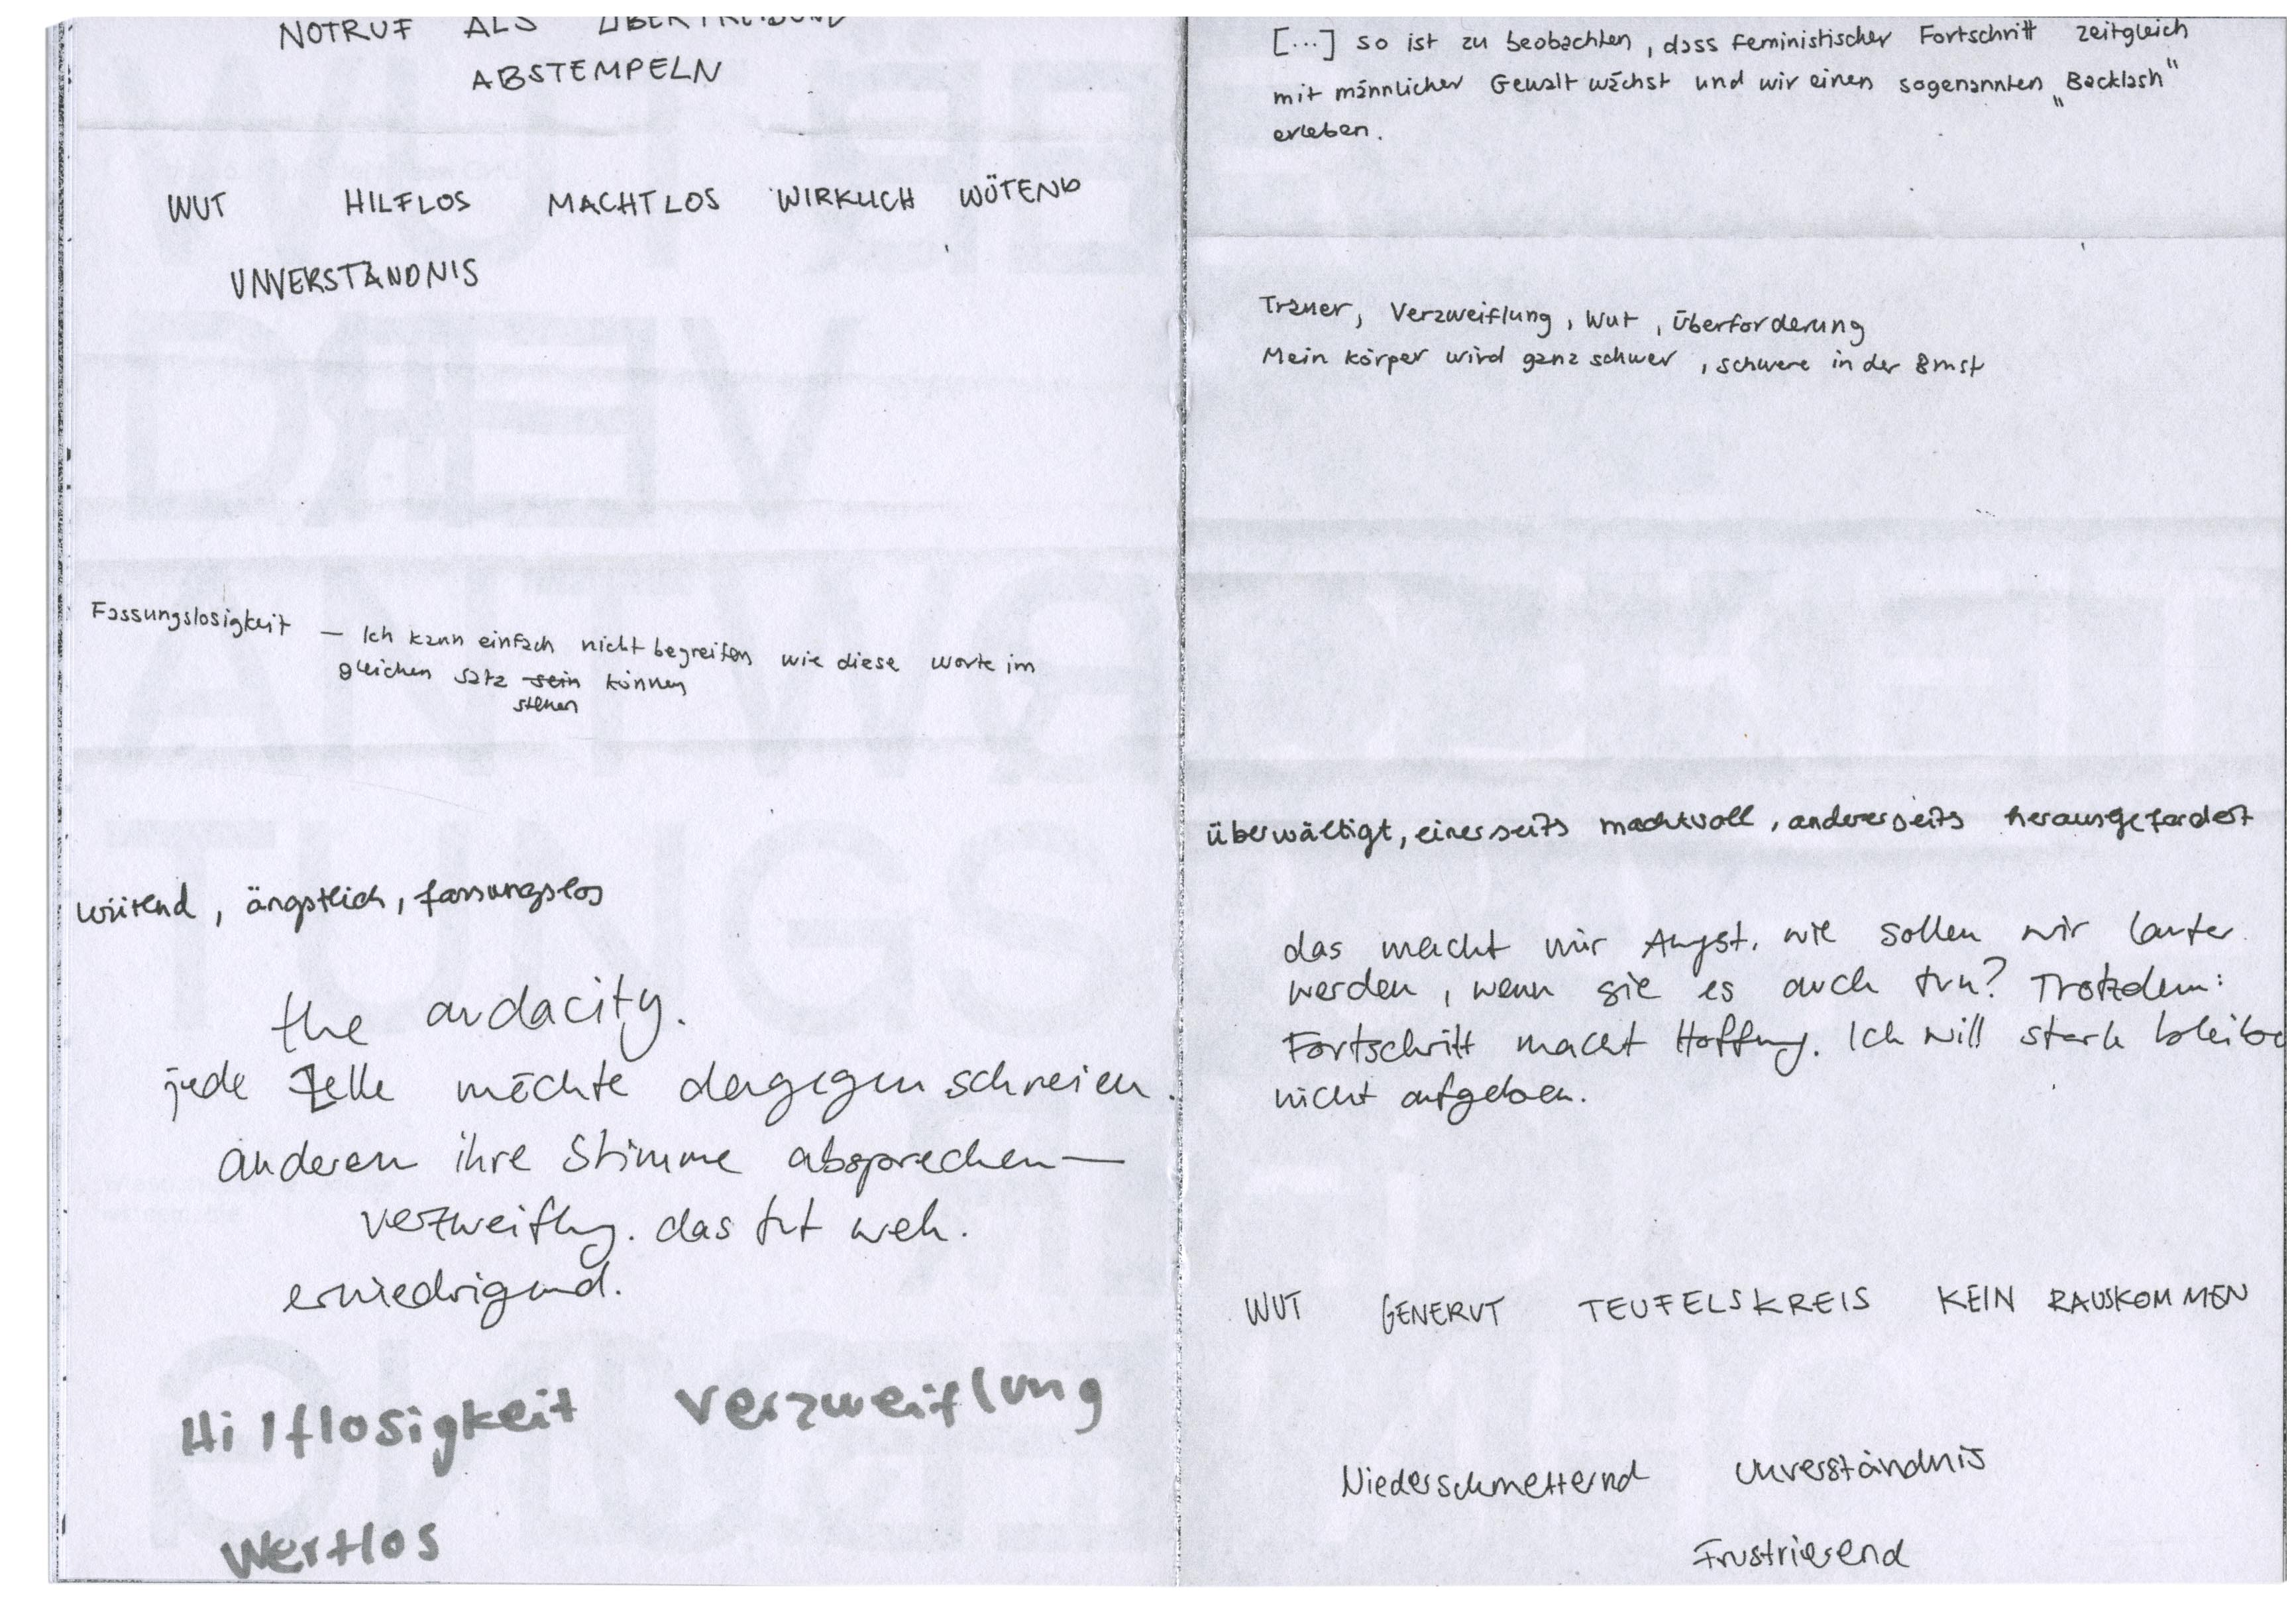 NOTRUF ALS ÜBERTREIBUNG
ABSTEMPELN
WUT HILFLOS MACHTLOS WIRKLICH WÜTEND
UNVERSTÄNDNIS
Fassungslosigkeit — Ich kann einfach nicht begreifen wie diese Worte im
gleichen Satz sein können
stehen
wütend, ängstlich, fassungslos
the audacity.
jede Zelle möchte dagegen schreien.
anderen ihre Stimme absprechen —
verzweiflung. das tut weh.
erniedrigend.
Hilflosigkeit Verzweiflung
Wertlos
[...] so ist zu beobachten, dass feministischer Fortschritt zeitgleich
mit männlicher Gewalt wächst und wir einen sogenannten „Backlash"
erleben.
Trauer, Verzweiflung, Wut, Überforderung
Mein Körper wird ganz schwer, schwere in der Brust
überwältigt, einerseits machtvoll, andererseits herausgefordert
das macht mir Angst. wie sollen wir lauter
werden, wenn sie es auch tun? Trotzdem:
Fortschritt macht Hoffnung. Ich will stark bleibe
nicht aufgeben.
WUT GENERVT TEUFELSKREIS KEIN RAUSKOMMEN
Niederschmetternd Unverständnis
Frustrierend